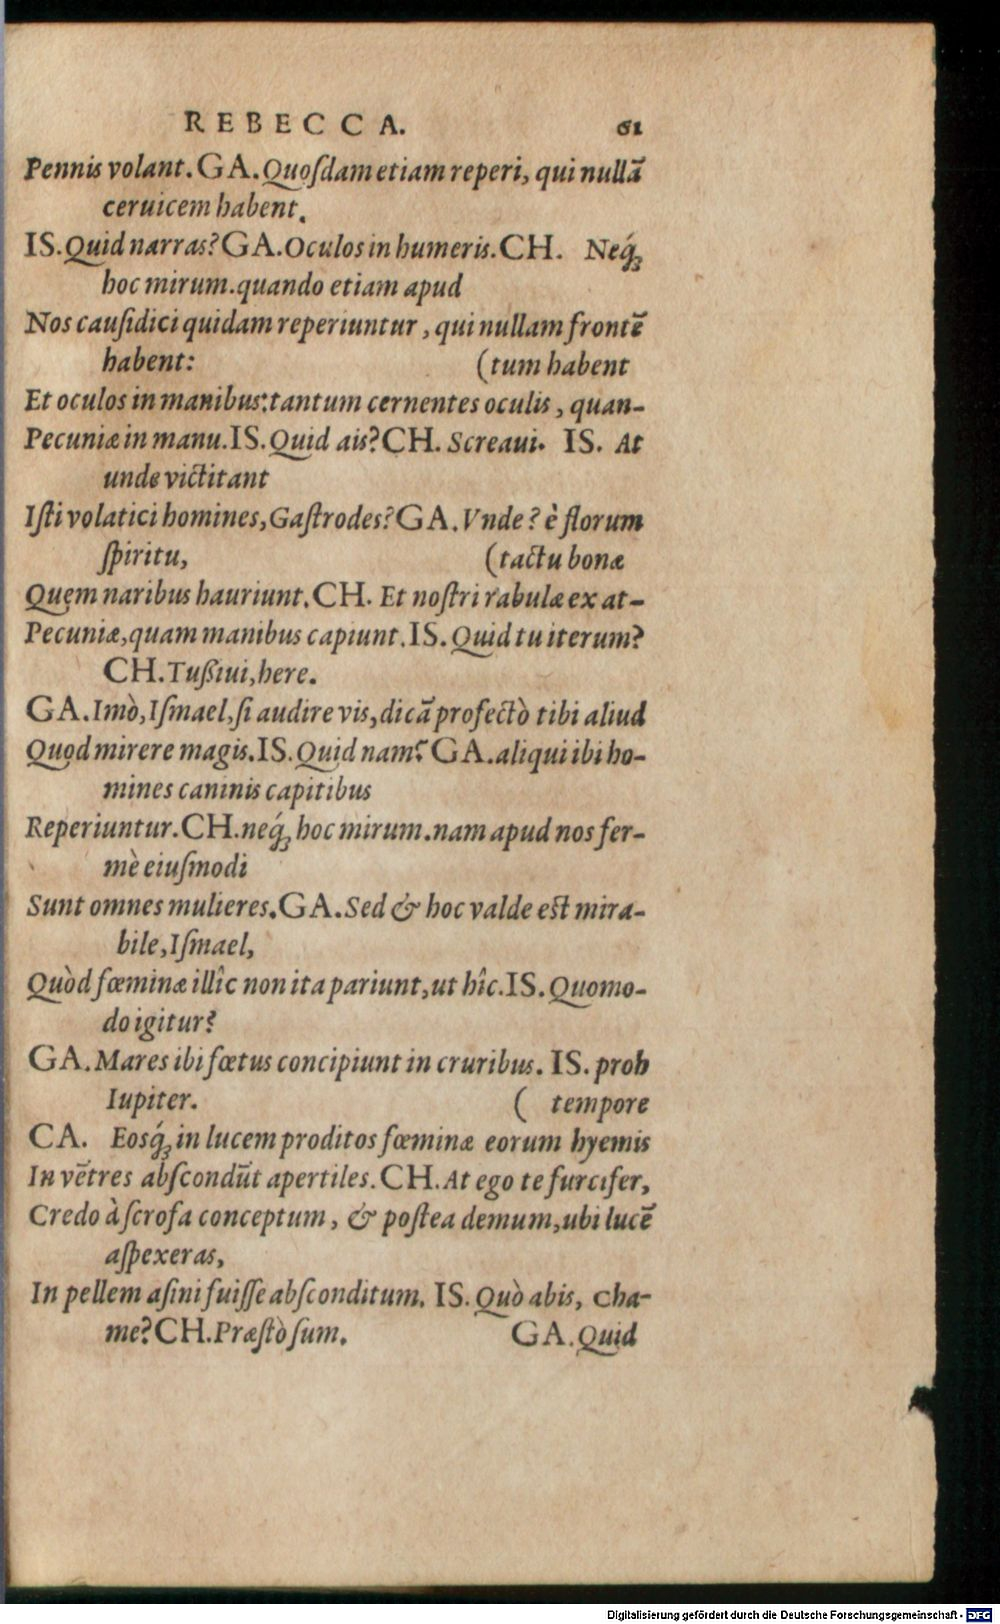 REBECCA. 61
Pennis volant. GA. Quoſdam etiam reperi, qui nullã
ceruicem habent.
IS. Quid narras? GA. Oculos in humeris. CH. Neq́;
hoc mirum. quando etiam apud
Nos cauſidici quidam reperiuntur, qui nullam frontẽ
habent: (tum habent
Et oculos in manibus: tantum cernentes oculis, quan-
Pecuniæ in manu. IS. Quid ais? CH. Screaui. IS. At
unde victitant
Iſti volatici homines, Gaſtrodes? GA. Vnde? è florum
ſpiritu, (tactu bonæ
Quem naribus hauriunt. CH. Et noſtri rabulæ ex at-
Pecuniæ, quam manibus capiunt. IS. Quid tu iterum?
CH. Tußiui, here.
GA. Imò, Iſmael, ſi audire vis, dicã profectò tibi aliud
Quod mirere magis. IS. Quid nam? GA. aliqui ibi ho-
mines caninis capitibus
Reperiuntur. CH. neq́; hoc mirum. nam apud nos fer-
mè eiuſmodi
Sunt omnes mulieres. GA. Sed & hoc valde est mira-
bile, Iſmael,
Quòd fœminæ illîc non ita pariunt, ut hîc. IS. Quomo-
do igitur?
GA. Mares ibi fœtus concipiunt in cruribus. IS. proh
Iupiter. ( tempore
CA. Eosq́; in lucem proditos fœminæ eorum hyemis
In vẽtres abſcondũt apertiles. CH. At ego te furcifer,
Credo à ſcrofa conceptum, & poſtea demum, ubi lucẽ
aſpexeras,
In pellem aſini fuiſſe abſconditum. IS. Quò abis, Cha-
me? CH. Præſtò ſum. GA. Quid
Digitalisierung gefördert durch die Deutsche Forschungsgemeinschaft - DFG